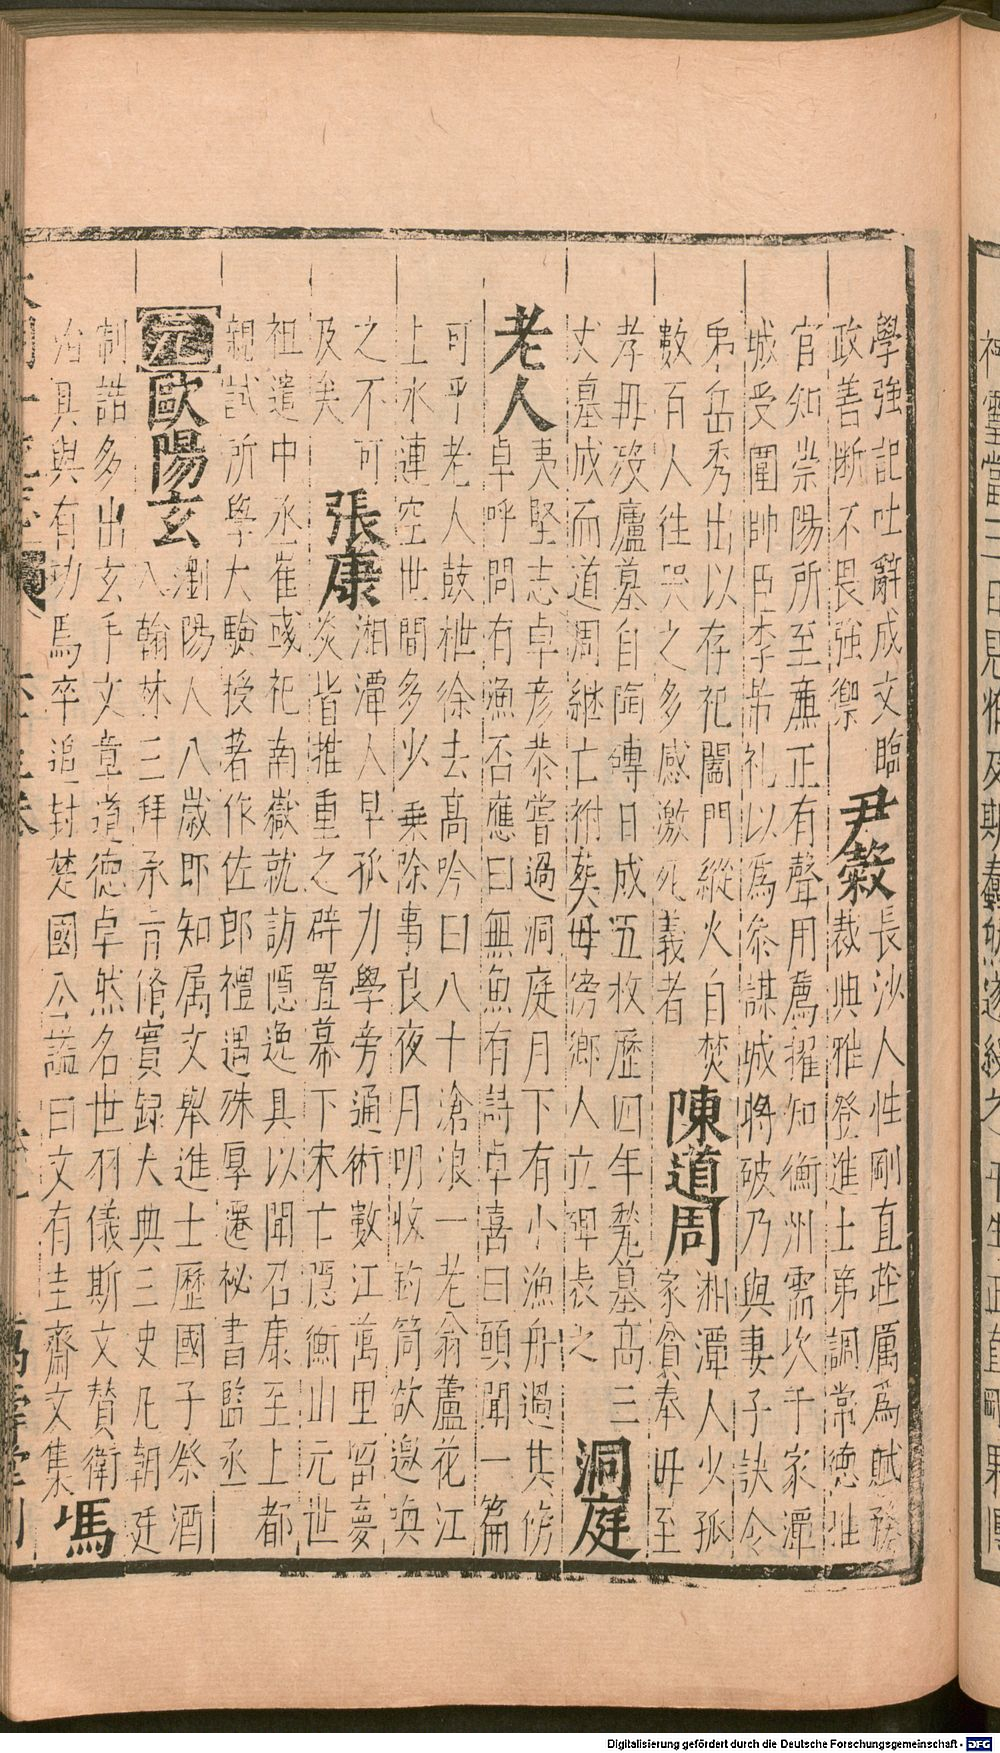 學強記吐辭成文臨
政善断不畏強禦
尹穀
長沙人性剛直莊厲為賦務
裁典雅登進士第調常德推
官知崇陽所至廉正有聲用薦擢知衡州需次于家潭
城受圍帥臣李芾礼以為參謀城將破乃與妻子訣令
弟岳秀出以存祀闔門縱火自焚
數百人往哭之多感激死義者
陳道周
湘潭人少孤
家貧奉毋至
孝毋歿廬墓自陶磚日成五枚歷四年甃墓高三
丈墓成而道周継亡祔葬毋傍鄉人立碑表之
洞庭
老人
夷堅志卓彦恭嘗過洞庭月下有小漁舟過其傍
卓呼問有漁否應曰無魚有詩卓喜曰願聞一篇
可乎老人鼓枻徐去高吟曰八十滄浪一老翁蘆花江
上水連空世間多少乗除事良夜月明收釣筒欲邀與
之不可
及矣
張康
湘潭人早孤力學旁通術數江萬里留夢
炎皆推重之辟置幕下宋亡隠衡山元世
祖遣中丞崔彧祀南嶽就訪隠逸具以聞召康至上都
親試所學大驗授著作佐郎禮遇殊厚遷祕書監丞
元
歐陽玄
瀏陽人八歲即知属文舉進士歷國子祭酒
入翰林三拜承旨脩實録大典三史凡朝廷
制誥多出玄手文章道德卓然名世羽儀斯文賛衛
治具與有功焉卒追封楚國公謚曰文有圭齋文集
馮
Digitalisierung gefördert durch die Deutsche Forschungsgemeinschaft - DFG